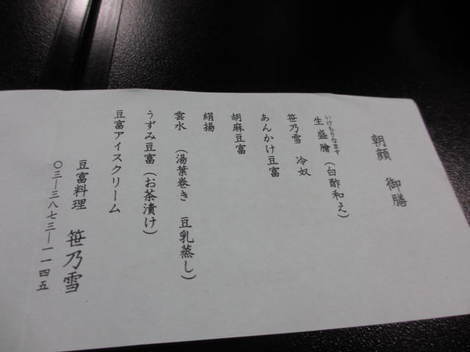 朝顔 御膳
いけもりなます
生盛膾(白酢和え)
笹乃雪 冷奴
あんかけ豆富
胡麻豆富
絹揚
雲水 (湯葉巻き 豆乳蒸し)
うずみ豆富(お茶漬け)
豆富アイスクリーム
豆富料理 笹乃雪
〇三ー三八七三ー一一四五